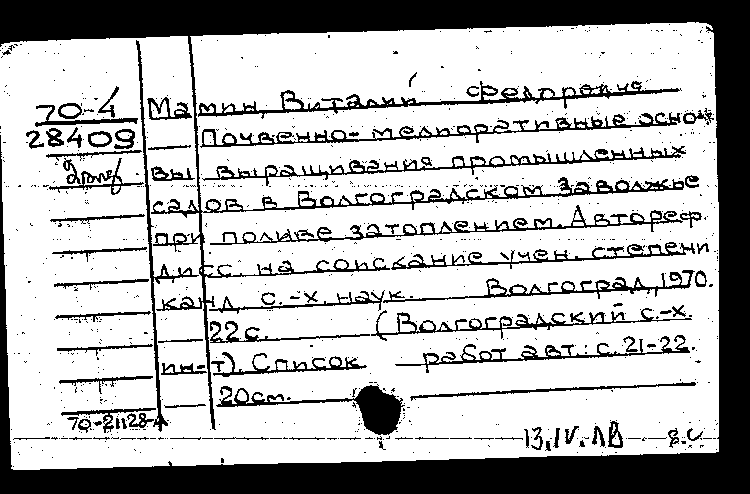 70-4 Мамин, Виталий Федорович
28409 Почвенно-мелиоративные осно-
вы выращивания промышленных
садов в Волгоградском Заволжье
при поливе затоплением. Автореф.
дисс. на соискание учен. степени
канд. с.-х. наук. Волгоград, 1970.
22 с. (Волгоградский с.-х.
ин-т). Список работ авт.: с. 21-22.
20 см.
70-21128-А
13.IV.